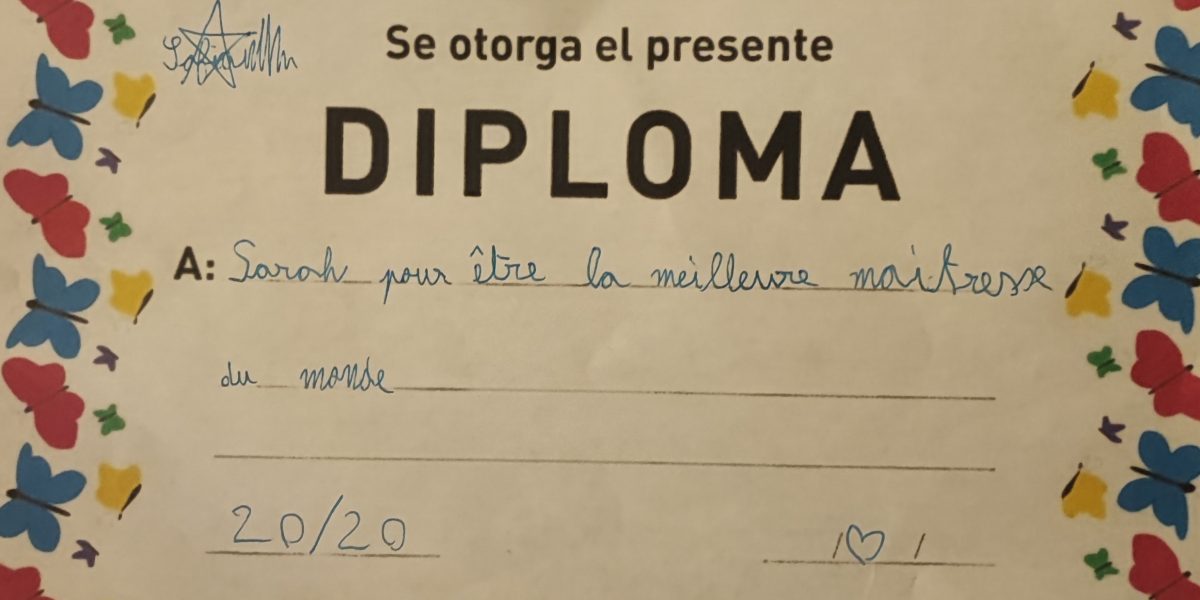 Se otorga el presente
DIPLOMA
A: Sarah pour être la meilleure maitresse
du monde
20/20
/ /